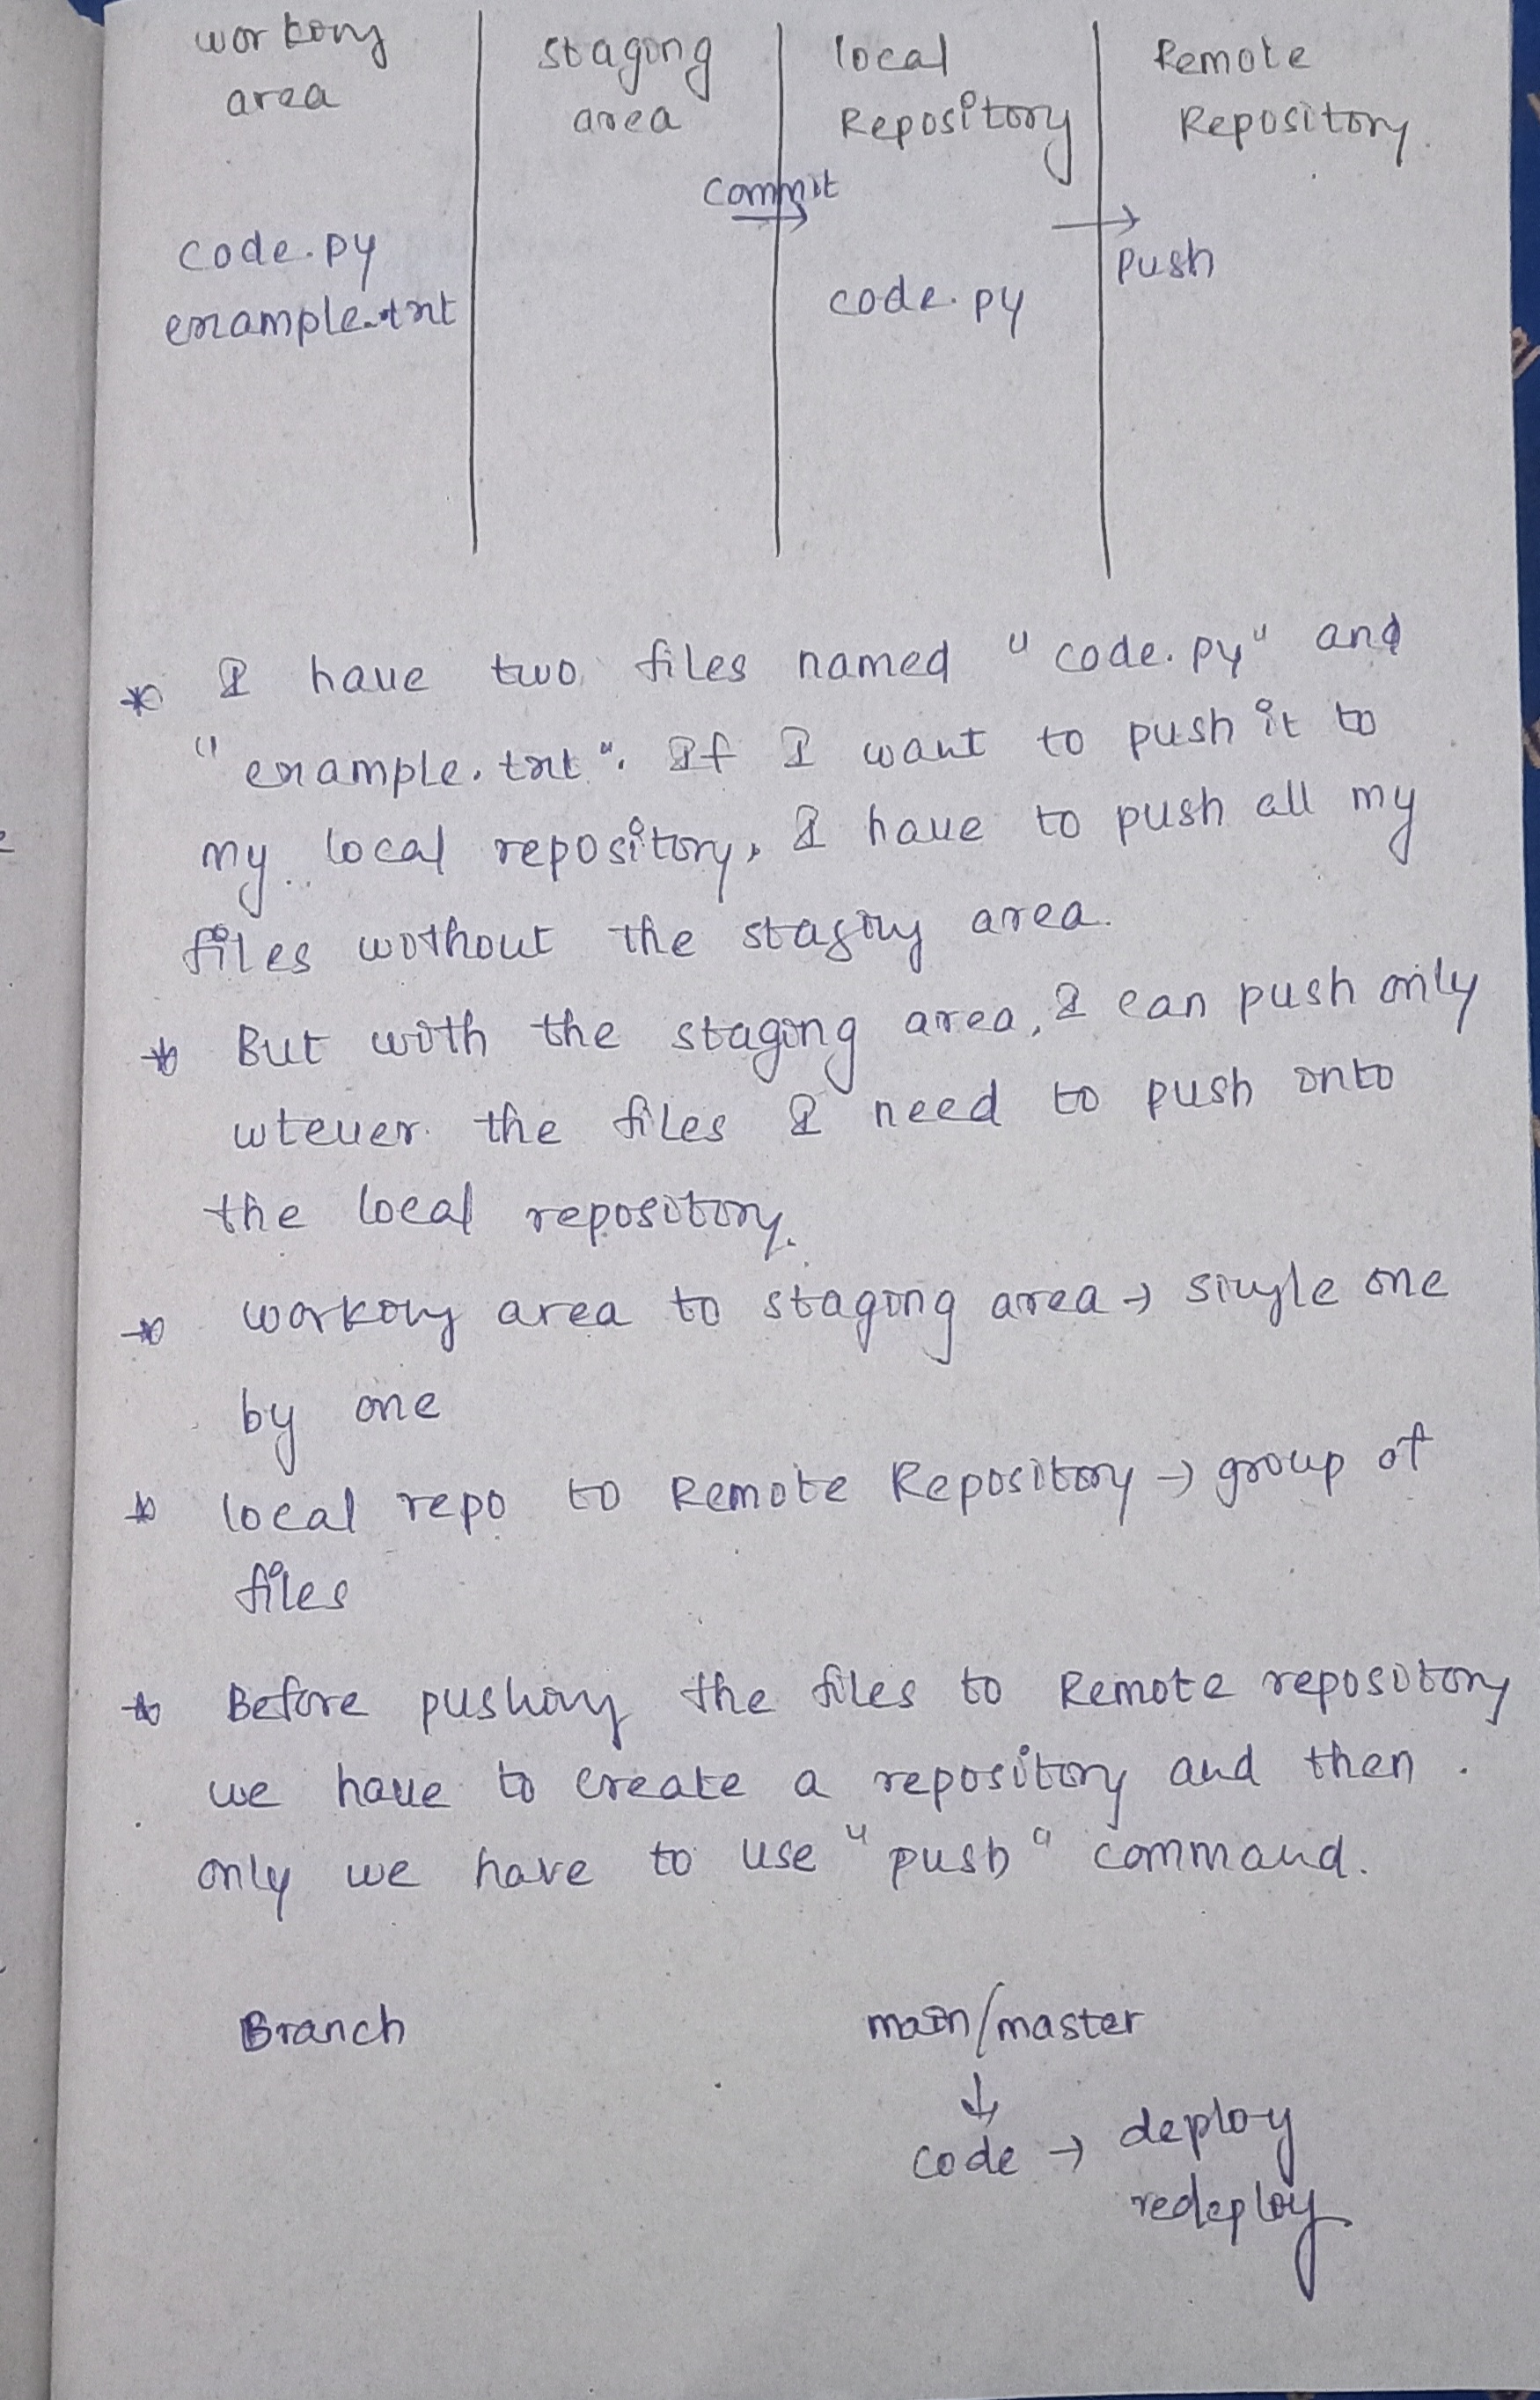 working staging local Remote
area area Repository Repository.
commit
code.py push
example.txt code.py
* I have two files named "code.py" and
"example.txt". If I want to push it to
my local repository, I have to push all my
files without the staging area.
* But with the staging area, I can push only
wtever the files I need to push onto
the local repository.
* working area to staging area → single one
by one
* local repo to Remote Repository → group of
files
* Before pushing the files to Remote repository
we have to create a repository and then
only we have to use "push" command.
Branch main/master
↓
code → deploy
redeploy